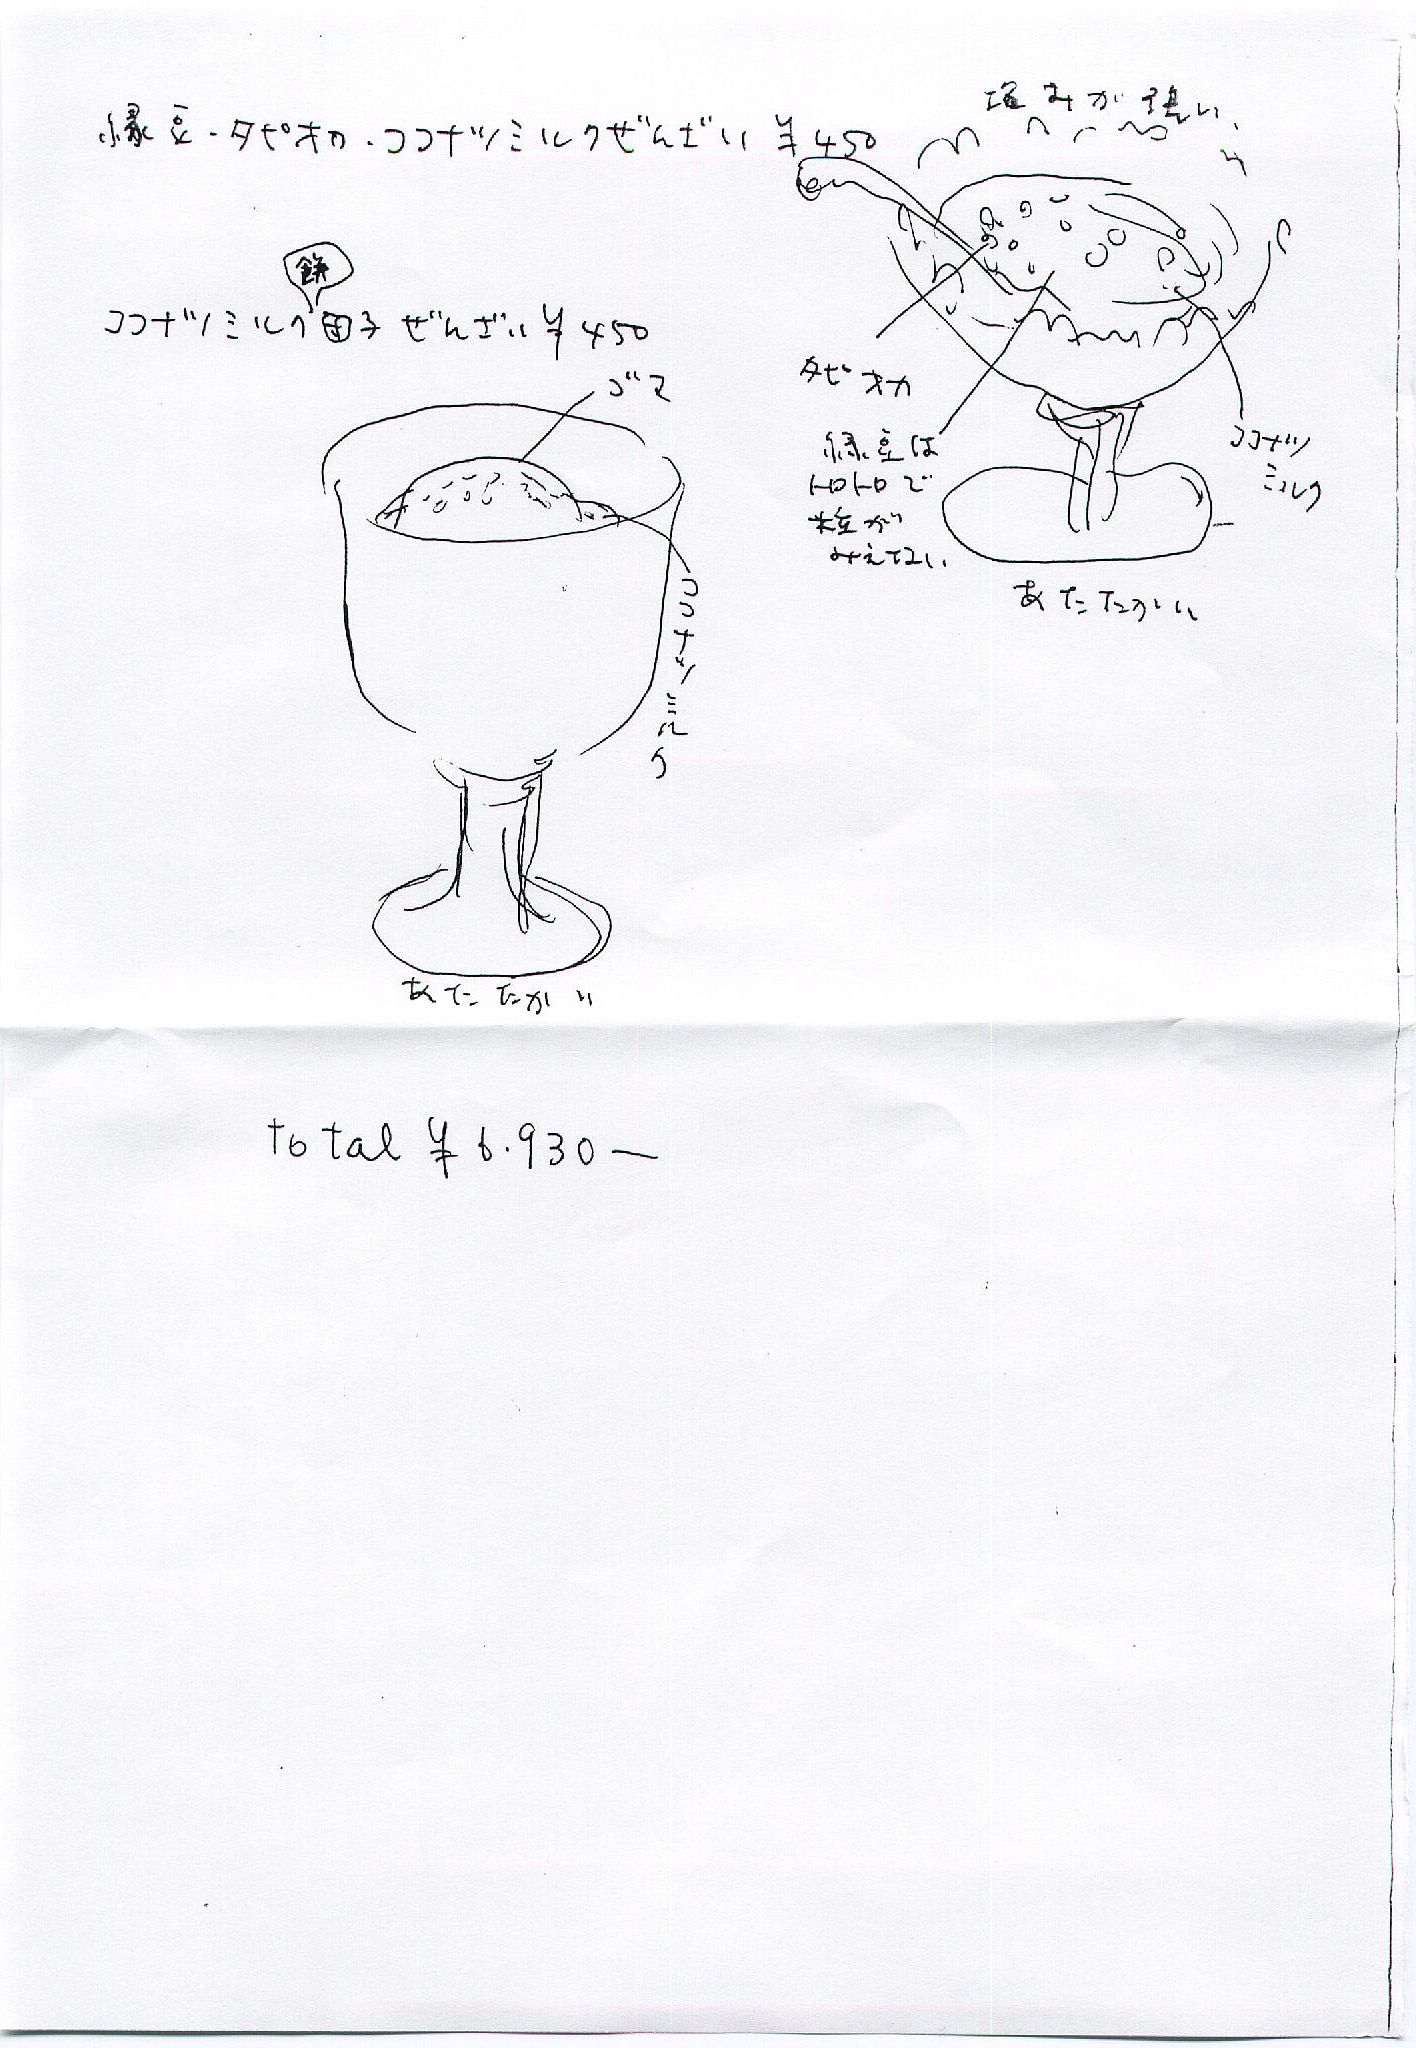 緑豆・タピオカ・ココナツミルクぜんざい ¥450
塩みが強い
タピオカ
緑豆は
トロトロで
粒が
みえてない
ココナツ
ミルク
あたたかい
餅
ココナツミルク団子ぜんざい ¥450
ゴマ
ココナツミルク
あたたかい
total ¥6.930ー